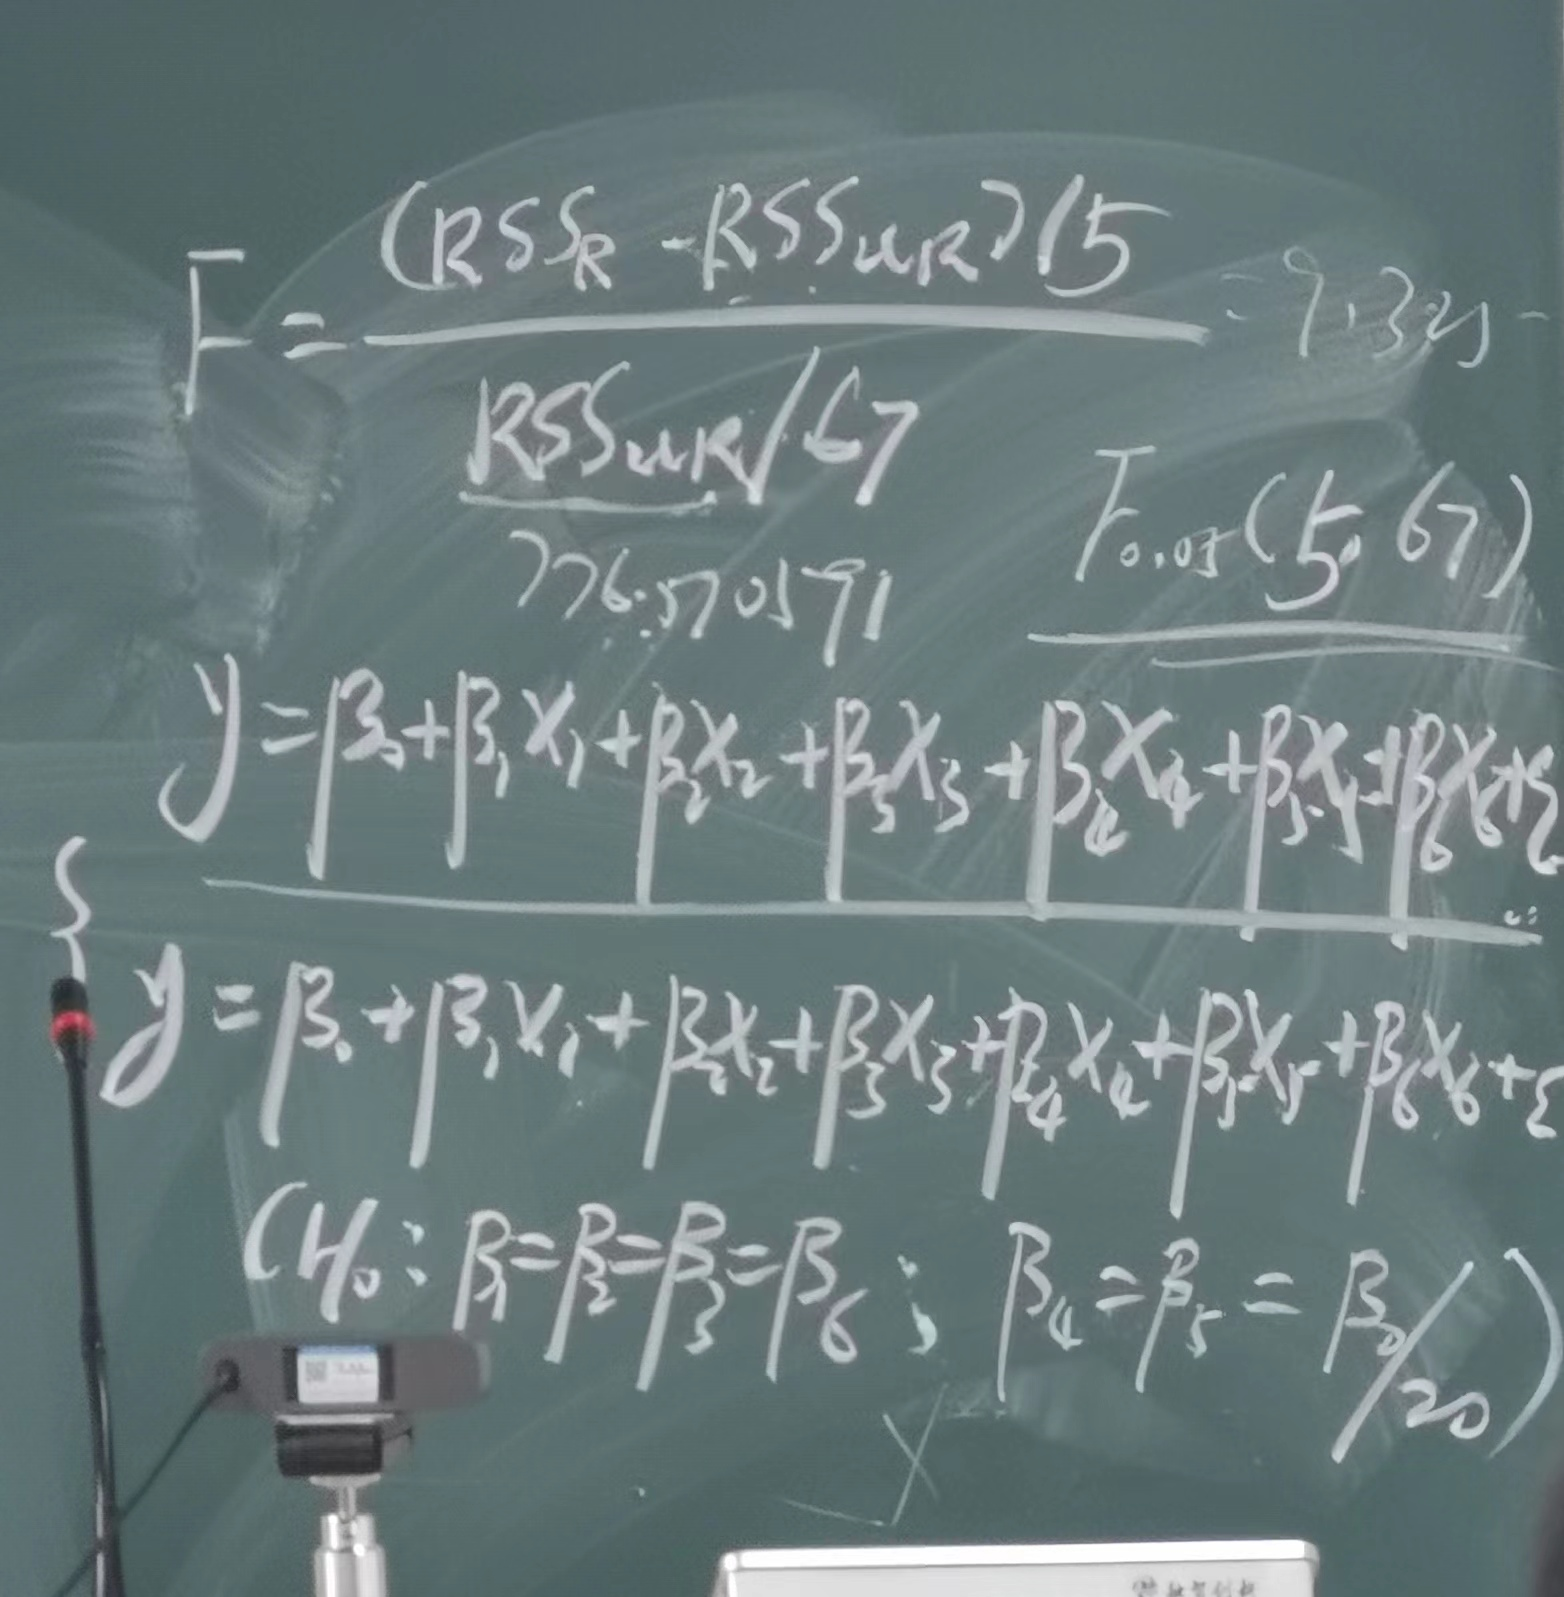 F = (RSS_R - RSS_UR)/5 / RSS_UR/67 = 9.325
776.570591
F_0.05(5, 67)
y = β₀ + β₁x₁ + β₂x₂ + β₃x₃ + β₄x₄ + β₅x₅ + β₆x₆ + ε
{ y = β₀ + β₁x₁ + β₂x₂ + β₃x₃ + β₄x₄ + β₅x₅ + β₆x₆ + ε
(H₀: β₁ = β₂ = β₃ = β₆; β₄ = β₅ = β₀/20)